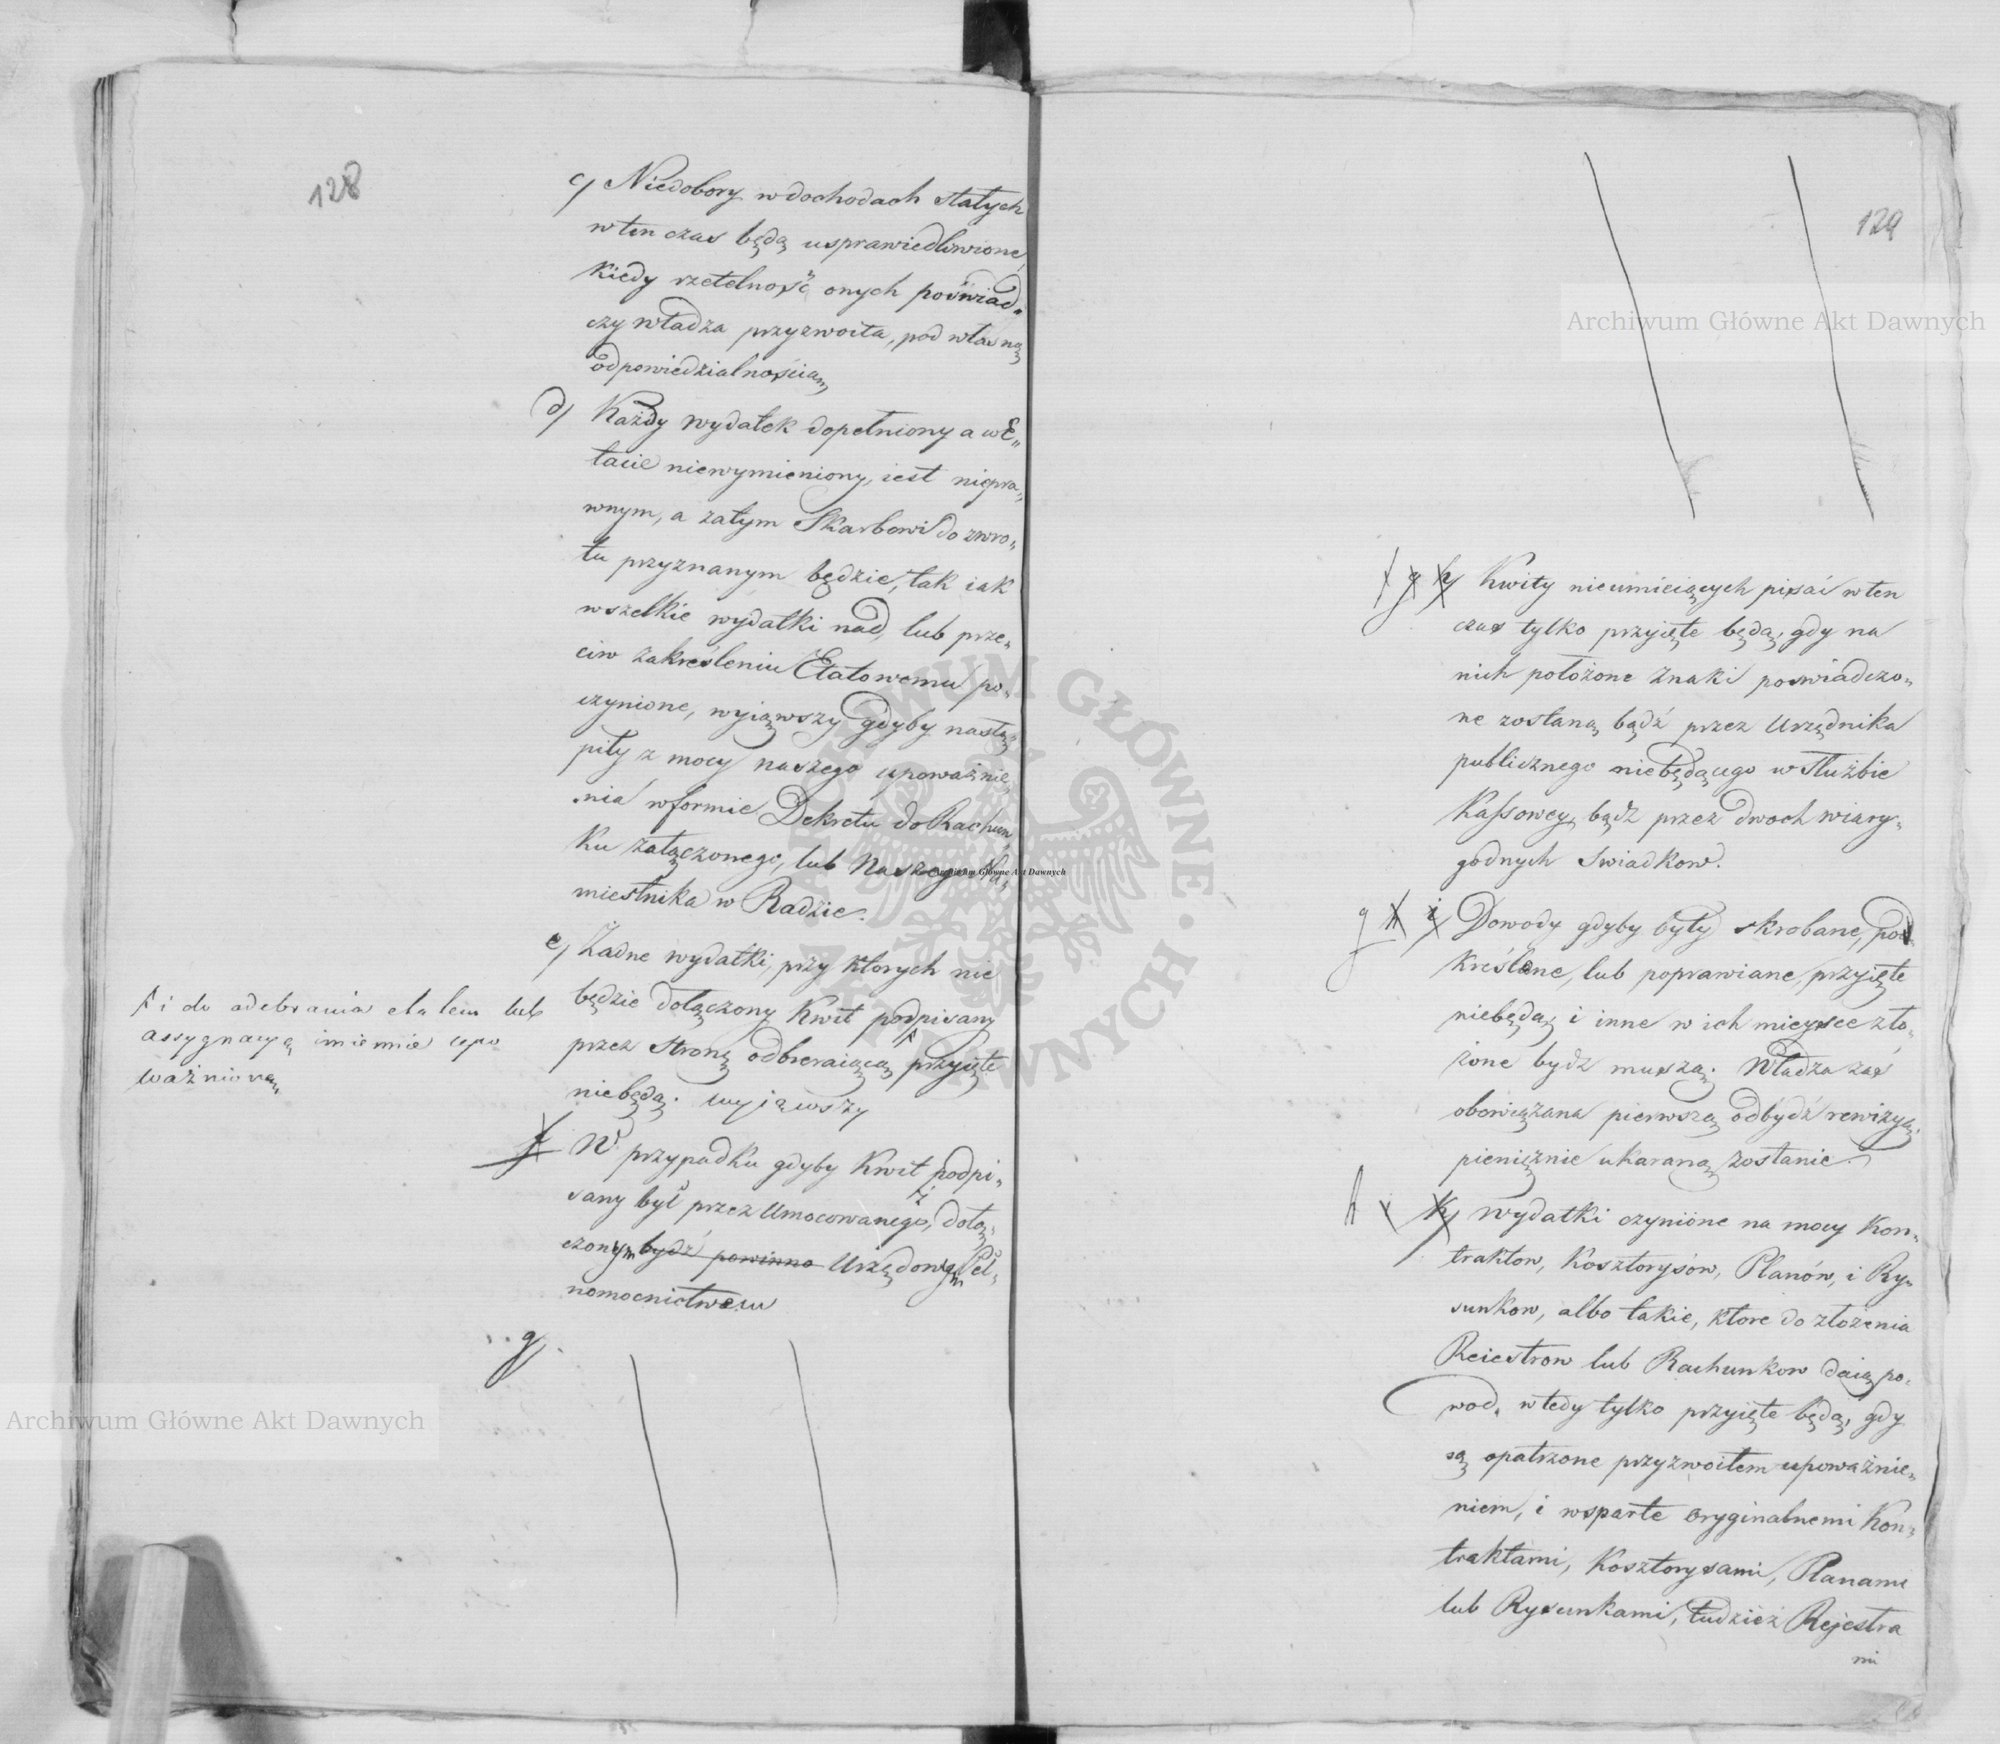 128
c) Niedobory w dochodach stałych
w ten czas będą usprawiedliwione,
kiedy rzetelność onych poświad„
czy władza przyzwoita, pod własną
odpowiedzialnością
d) Każdy wydatek dopełniony a w E„
tacie niewymieniony, iest niepra„
wnym, a zatym Skarbowi do zwro„
tu przyznanym będzie, tak iak
wszelkie wydatki nad, lub prze„
ciw zakreśleniu Etatowemu po„
czynione, wyiąwszy gdyby nastą„
piły z mocy naszego upoważnie„
nia w formie Dekretu do Rachun„
ku załączonego, lub Naszego Na„
miestnika w Radzie.
e) Żadne wydatki, przy ktorych nie
będzie dołączony Kwit podpisany
przez Stronę odbieraiącą, przyięte
niebędą. wyjąwszy
† i do odebrania etatem lub
assygnacyą imiennie upo
ważnioną
f W przypadku gdyby Kwit podpi„
sany był przez Umocowanego, z dołą„
czonym bydź powinno Urzędowym Peł„
nomocnictwem
g.
129
f g h) Kwity nieumieiących pisać w ten
czas tylko przyięte będą, gdy na
nich położone znaki poswiadczo„
ne zostaną bądź przez Urzędnika
publicznego niebędącego w służbie
Kassowey, bądz przez dwoch wiary„
godnych swiadkow.
g h i) Dowody gdyby były skrobane, pod
kreślane, lub poprawiane, przyięte
niebędą, i inne w ich mieysce zło„
żone bydz muszą. Władza zaś
obowiązana pierwszą odbydź rewizyą,
pienięznie ukaraną zostanie.
h i k) Wydatki czynione na mocy Kon„
traktow, Kosztorysow, Planów, i Ry„
sunkow, albo takie, ktore do złożenia
Reiestrow lub Rachunkow daią po„
wod, wtedy tylko przyięte będą, gdy
są opatrzone przyzwoitem upoważnie„
niem, i wsparte oryginalnemi Kon„
traktami, Kosztorysami, Planami
lub Rysunkami, tudzież Rejestra
mi
Archiwum Główne Akt Dawnych
Archiwum Główne Akt Dawnych
Archiwum Główne Akt Dawnych
ARCHIWUM GŁÓWNE AKT DAWNYCH